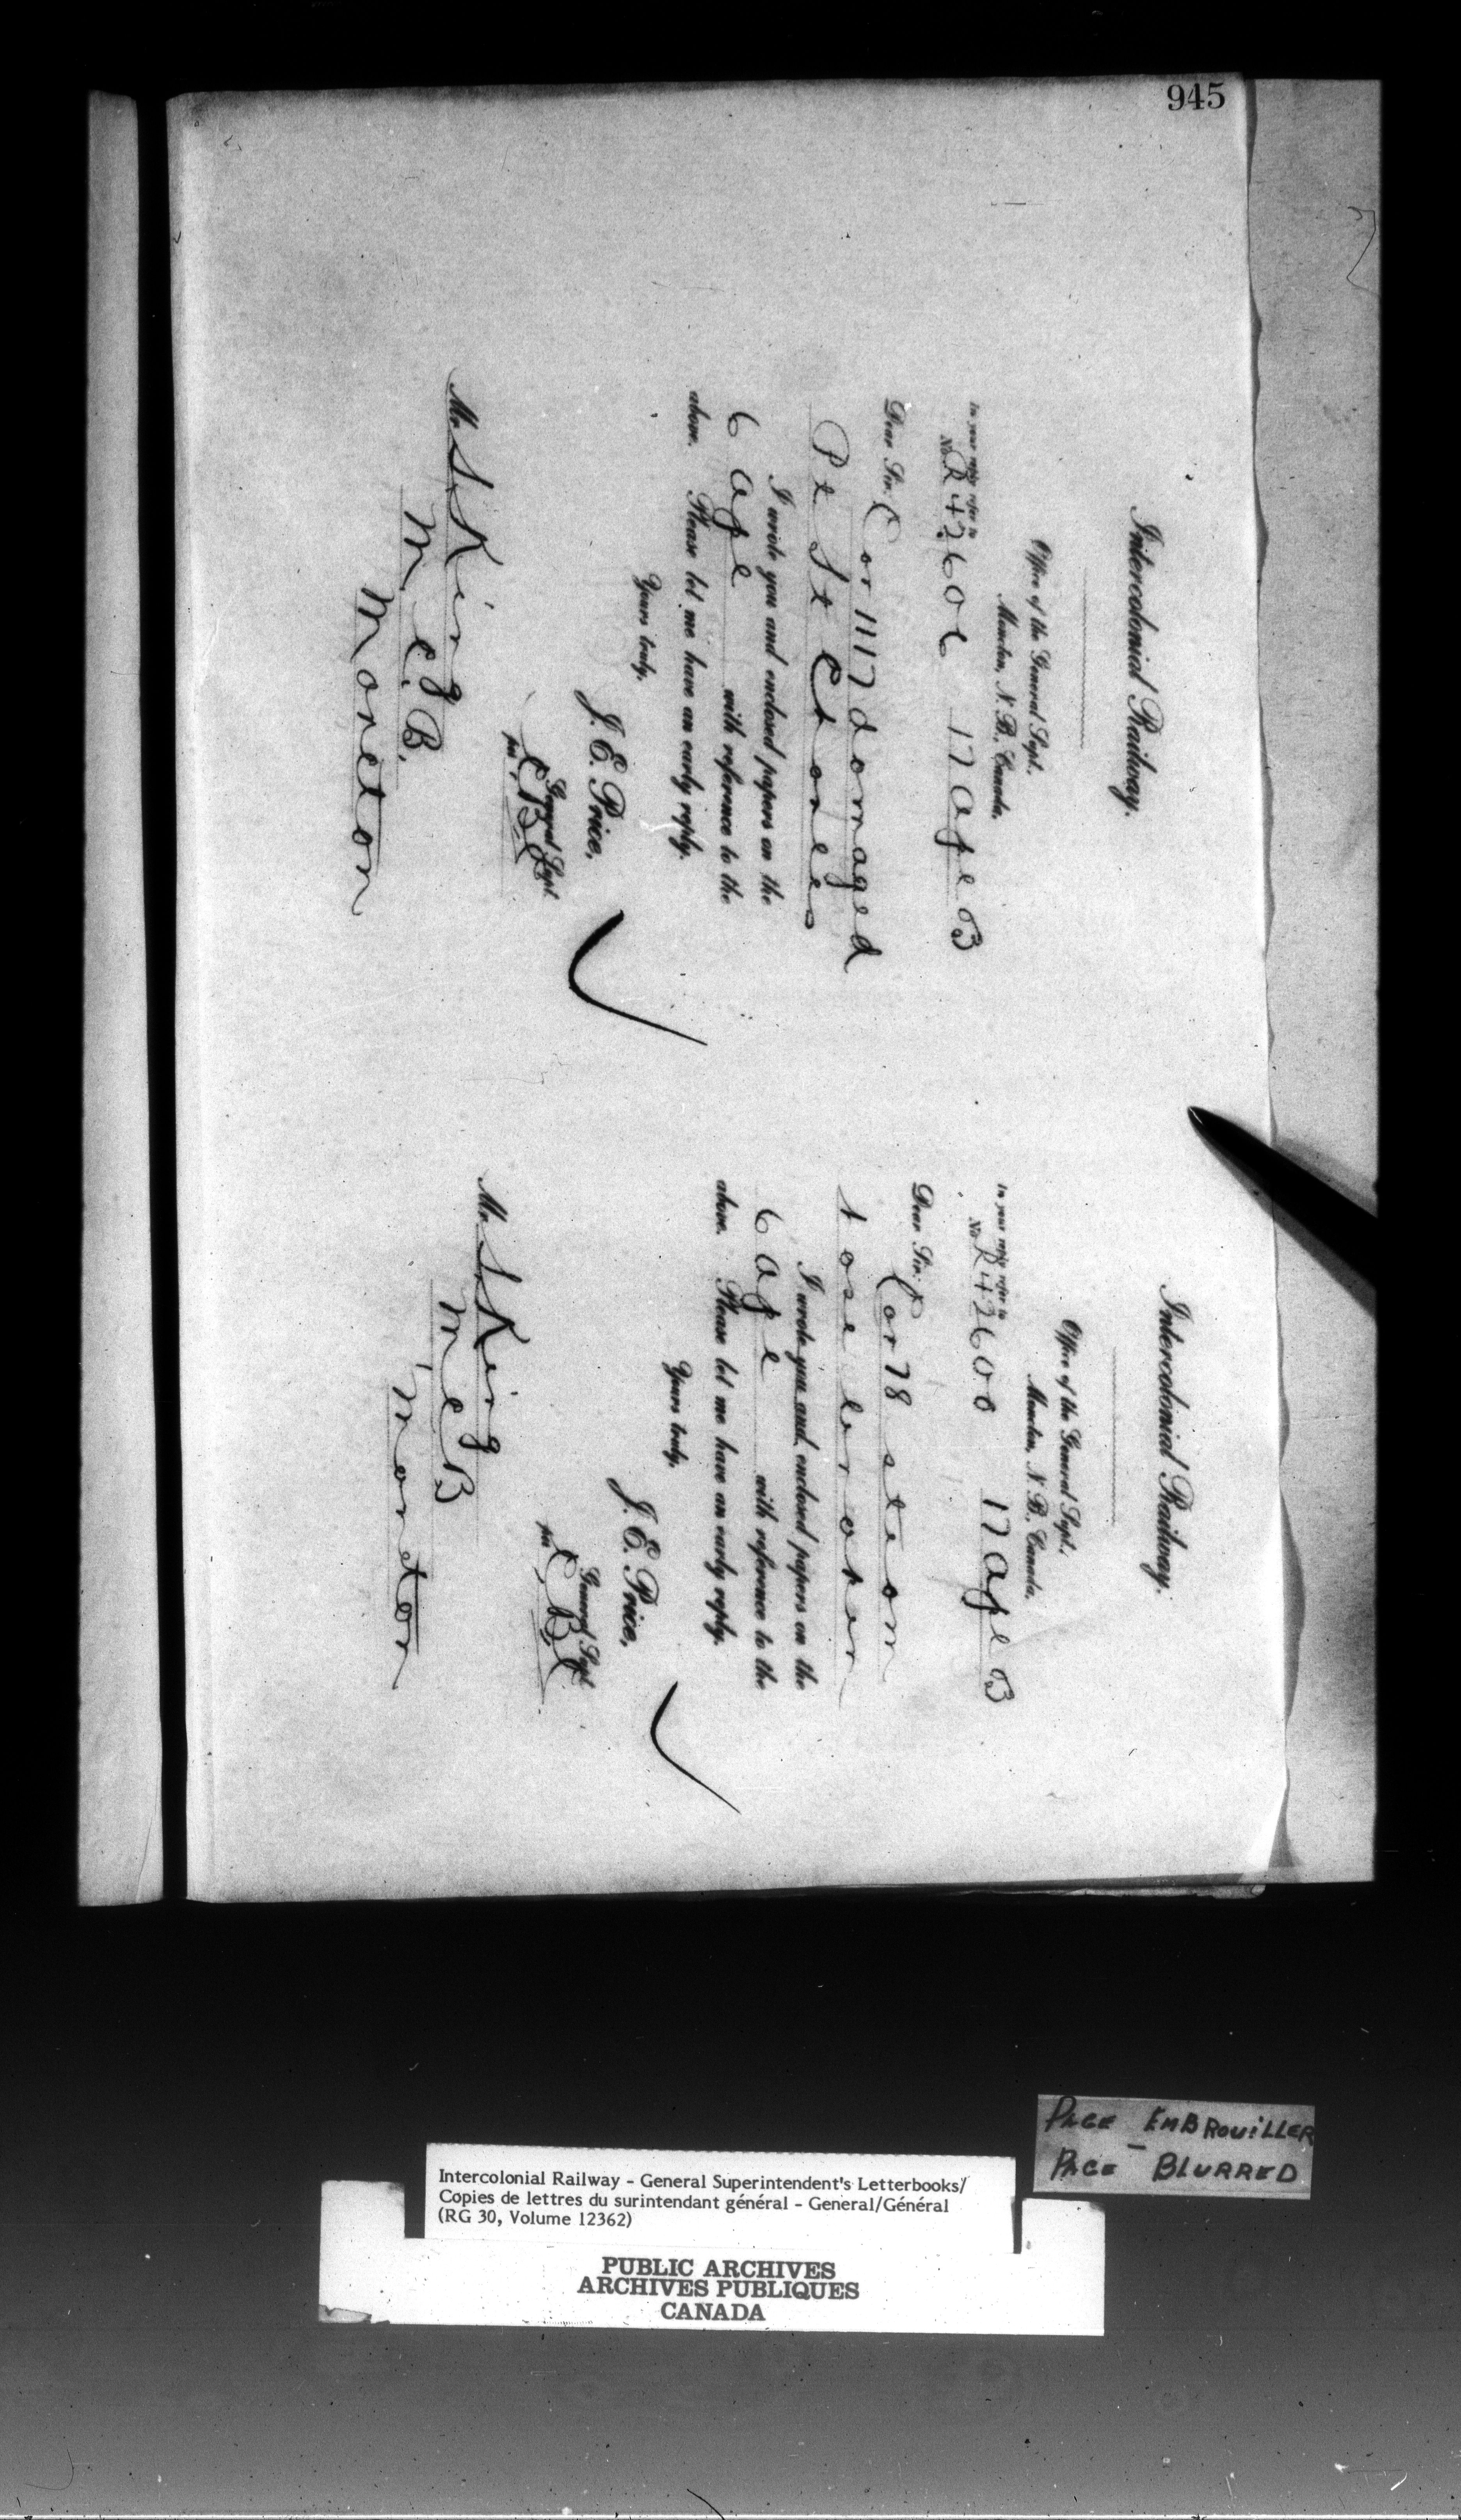 945
Intercolonial Railway.
Office of the General Supt.,
Moncton, N. B., Canada,
In your reply refer to
No. R42606 17 Apl 03
Dear Sir: Car 1117 damaged
Pt St Charles
I wrote you and enclosed papers on the
6 Apl with reference to the
above. Please let me have an early reply.
Yours truly,
J. E. Price,
General Supt
per
Mr. S. King
M. C. B.
Moncton
Intercolonial Railway.
Office of the General Supt.,
Moncton, N. B., Canada,
In your reply refer to
No. R42600 17 Apl 03
Dear Sir:
Car 78
I wrote you and enclosed papers on the
6 Apl with reference to the
above. Please let me have an early reply.
Yours truly,
J. E. Price,
General Supt
per
Mr. S. King
M C B
Moncton
PAGE EMBROUILLER
PAGE BLURRED
Intercolonial Railway - General Superintendent's Letterbooks/
Copies de lettres du surintendant général - General/Général
(RG 30, Volume 12362)
PUBLIC ARCHIVES
ARCHIVES PUBLIQUES
CANADA